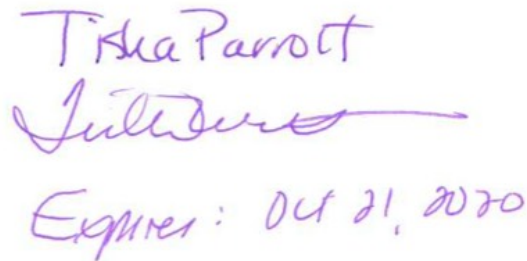 Tisha Parrott
Expires: Oct 21, 2020